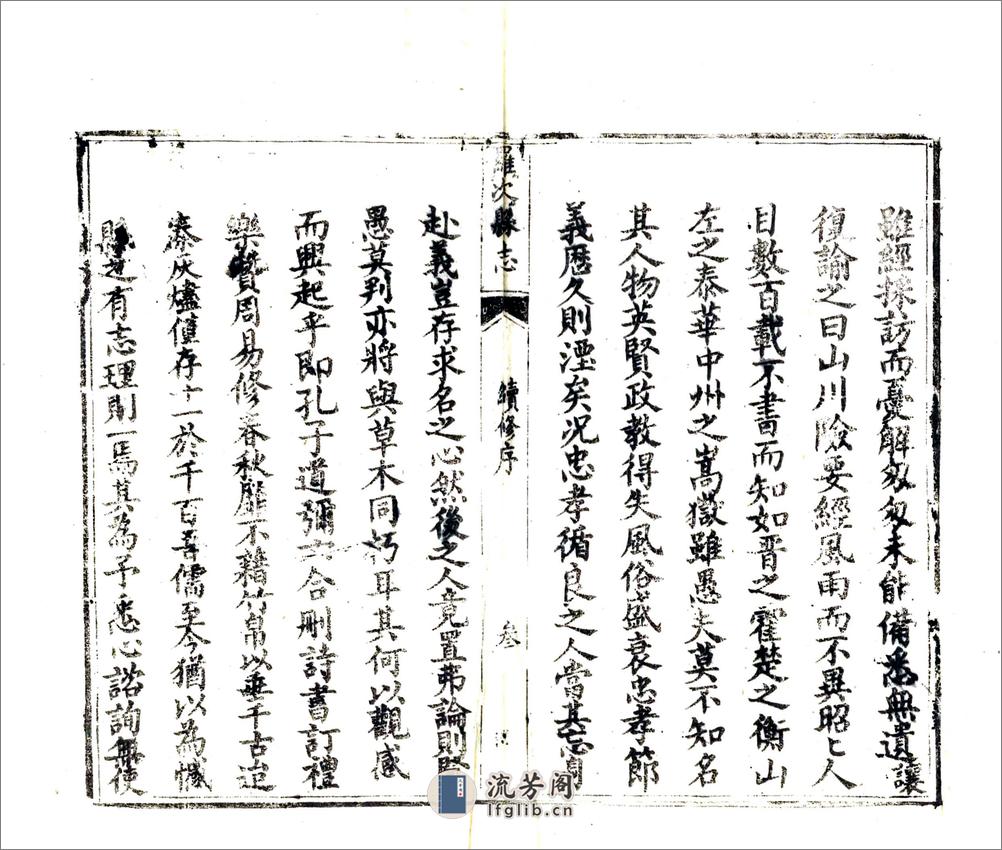 雖經採訪而憂解匆匆未能備悉無遺讓
復諭之曰山川險要經風雨而不異昭〻人
目數百載不書而知如晋之霍楚之衡山
左之泰華中州之嵩嶽雖愚夫莫不知名
其人物英賢政教得失風俗盛衰忠孝節
義曆久則湮矣况忠孝循良之人當其忘身
羅次縣志
續修序
叁
赴義豈存求名之心然後之人竟置弗論則賢
愚莫判亦將與草木同朽耳其何以觀感
而興起乎即孔子道彌六合刪詩書訂禮
樂贊周易修春秋靡不藉竹帛以垂千古迨
秦灰燼僅存十一於千百㖇儒至今猶以為憾
縣邑有志理則一焉其為予悉心諮詢無使
流芳阁
lfglib.cn